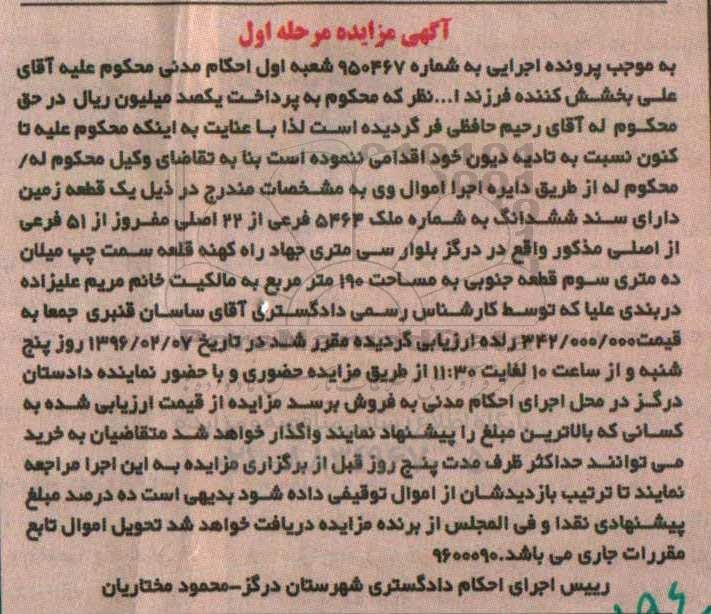 آگهی مزایده مرحله اول
به موجب پرونده اجرایی به شماره ۹۵۰۴۶۷ شعبه اول احکام مدنی محکوم علیه آقای
علی بخشش کننده فرزند ا...نظر که محکوم به پرداخت یکصد میلیون ریال در حق
محکوم له آقای رحیم حافظی فر گردیده است لذا با عنایت به اینکه محکوم علیه تا
کنون نسبت به تادیه دیون خود اقدامی ننموده است بنا به تقاضای وکیل محکوم له/
محکوم له از طریق دایره اجرا اموال وی به مشخصات مندرج در ذیل یک قطعه زمین
دارای سند ششدانگ به شماره ملک ۵۴۶۴ فرعی از ۲۲ اصلی مفروز از ۵۱ فرعی
از اصلی مذکور واقع در درگز بلوار سی متری جهاد راه کهنه قلعه سمت چپ میلان
ده متری سوم قطعه جنوبی به مساحت ۱۹۰ متر مربع به مالکیت خانم مریم علیزاده
دربندی علیا که توسط کارشناس رسمی دادگستری آقای ساسان قنبری جمعا به
قیمت۳۴۲/۰۰۰/۰۰۰ رلده ارزیابی گردیده مقرر شد در تاریخ ۱۳۹۶/۰۲/۰۷ روز پنج
شنبه و از ساعت ۱۰ لغایت ۱۱:۳۰ از طریق مزایده حضوری و با حضور نماینده دادستان
درگز در محل اجرای احکام مدنی به فروش برسد مزایده از قیمت ارزیابی شده به
کسانی که بالاترین مبلغ را پیشنهاد نمایند واگذار خواهد شد متقاضیان به خرید
می توانند حداکثر ظرف مدت پنج روز قبل از برگزاری مزایده به این اجرا مراجعه
نمایند تا ترتیب بازدیدشان از اموال توقیفی داده شود بدیهی است ده درصد مبلغ
پیشنهادی نقدا و فی المجلس از برنده مزایده دریافت خواهد شد تحویل اموال تابع
مقررات جاری می باشد.۹۶۰۰۰۹۰
رییس اجرای احکام دادگستری شهرستان درگز-محمود مختاریان